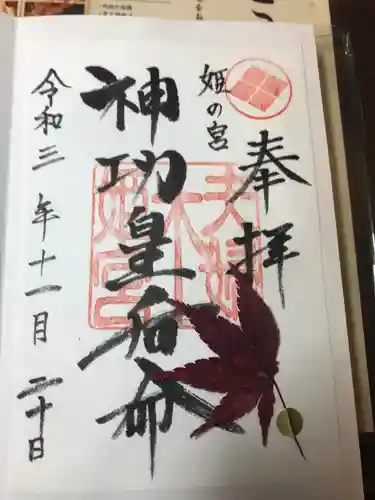 奉拝
姫の宮
神功皇后命
令和三年十一月二十日
夫婦
姫宮